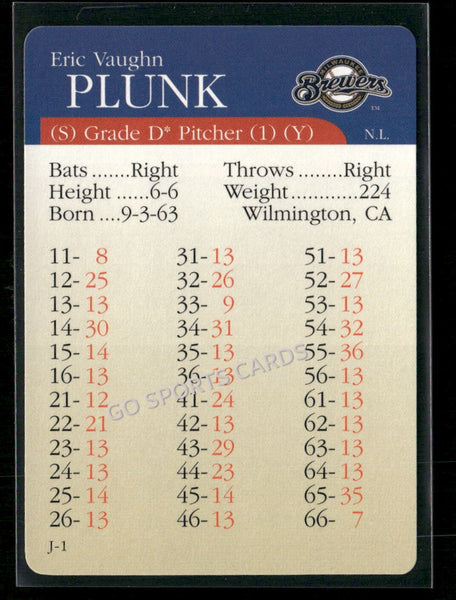 Eric Vaughn
PLUNK
MILWAUKEE
Brewers
TM
(S) Grade D* Pitcher (1) (Y)
N.L.
Bats .......Right Throws ........Right
Height ......6-6 Weight............224
Born ....9-3-63 Wilmington, CA
11- 8 31-13 51-13
12-25 32-26 52-27
13-13 33- 9 53-13
14-30 34-31 54-32
15-14 35-14 55-36
16-13 36-13 56-13
21-12 41-24 61-13
22-21 42-13 62-13
23-13 43-29 63-13
24-13 44-23 64-13
25-14 45-14 65-35
26-13 46-13 66- 7
J-1
GO SPORTS CARDS